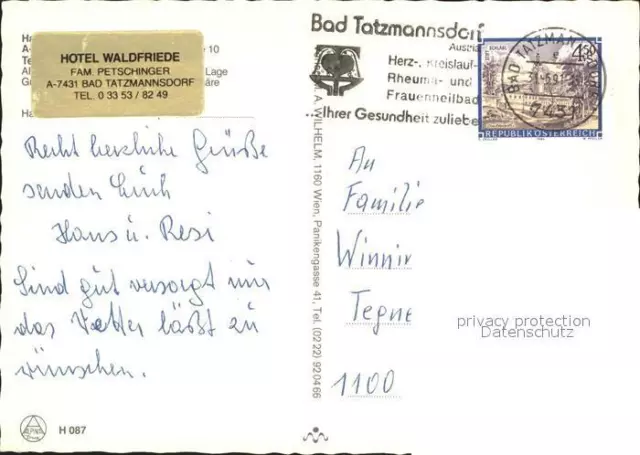 Bad Tatzmannsdorf
Austria
Herz-, Kreislauf-
Rheuma- und
Frauenheilbad
...Ihrer Gesundheit zuliebe
BAD TATZMANNSDORF
7431
REPUBLIK ÖSTERREICH
HOTEL WALDFRIEDE
FAM. PETSCHINGER
A-7431 BAD TATZMANNSDORF
TEL. 0 33 53 / 82 49
Ha
A-
10
Te
Al
Lage
G
äre
Ha
Recht herzliche Grüße
senden Euch
Hans u. Resi
Sind gut versorgt nur
das Wetter läßt zu
wünschen.
M. A. WILHELM, 1160 Wien, Panikengasse 41, Tel. (0222) 92 04 66
An
Familie
Winnin
Tegne
1100
privacy protection
Datenschutz
H 087